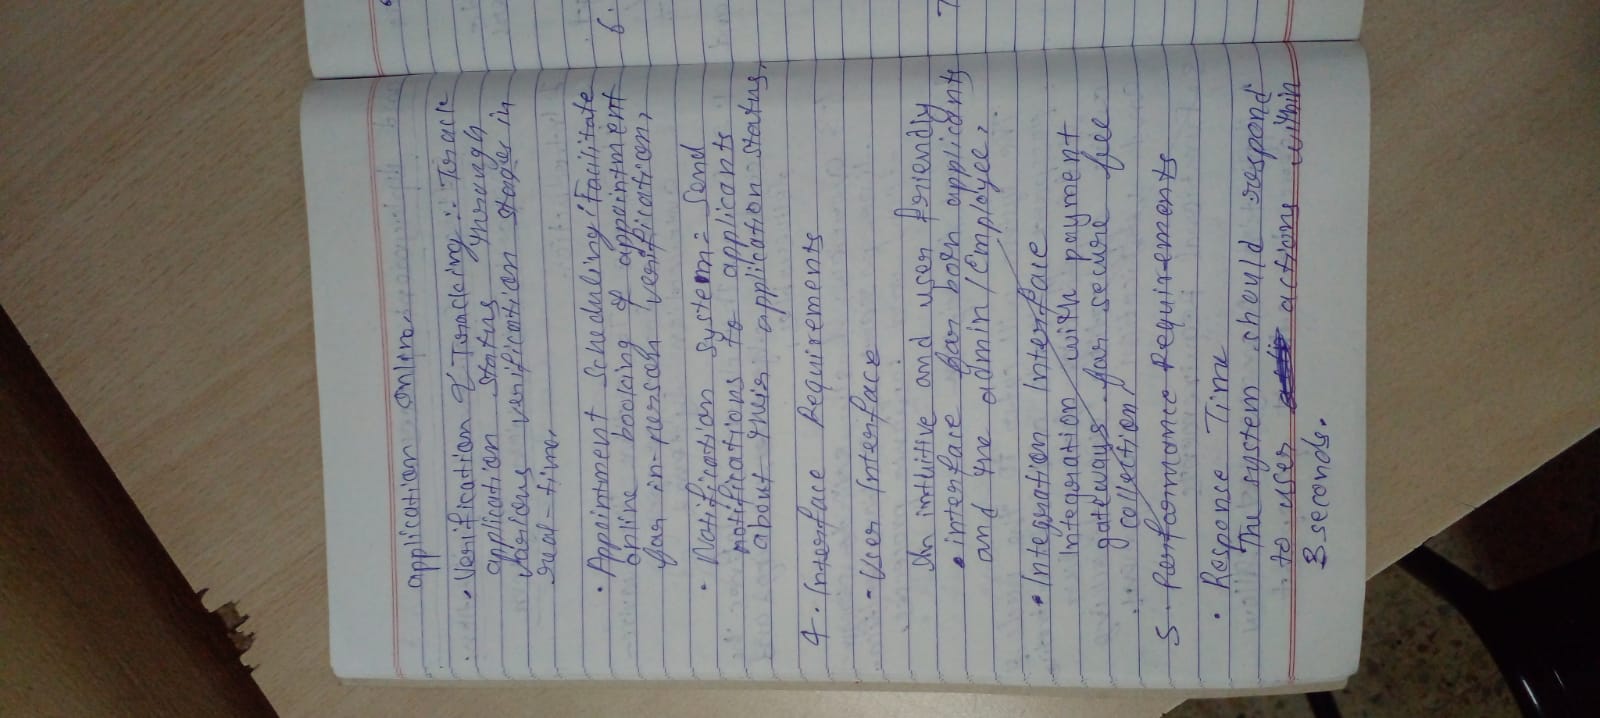 application online.
• Verification & Tracking :- Track
application status through
various verification stages in
real-time.
• Appointment Scheduling : Facilitate
online booking of appointment
for in-person verification,
• Notification System :- Send
notifications to applicants
about their application status,
4. Interface Requirements
- User Interface
An intuitive and user friendly
• interface for both applicants
and the admin/Employee,
• Integration Interface
Integration with payment
gateways for secure fee
collection
5. Performance Requirements
• Response Time
The system should respond
to user actions within
3 seconds.
6.
7